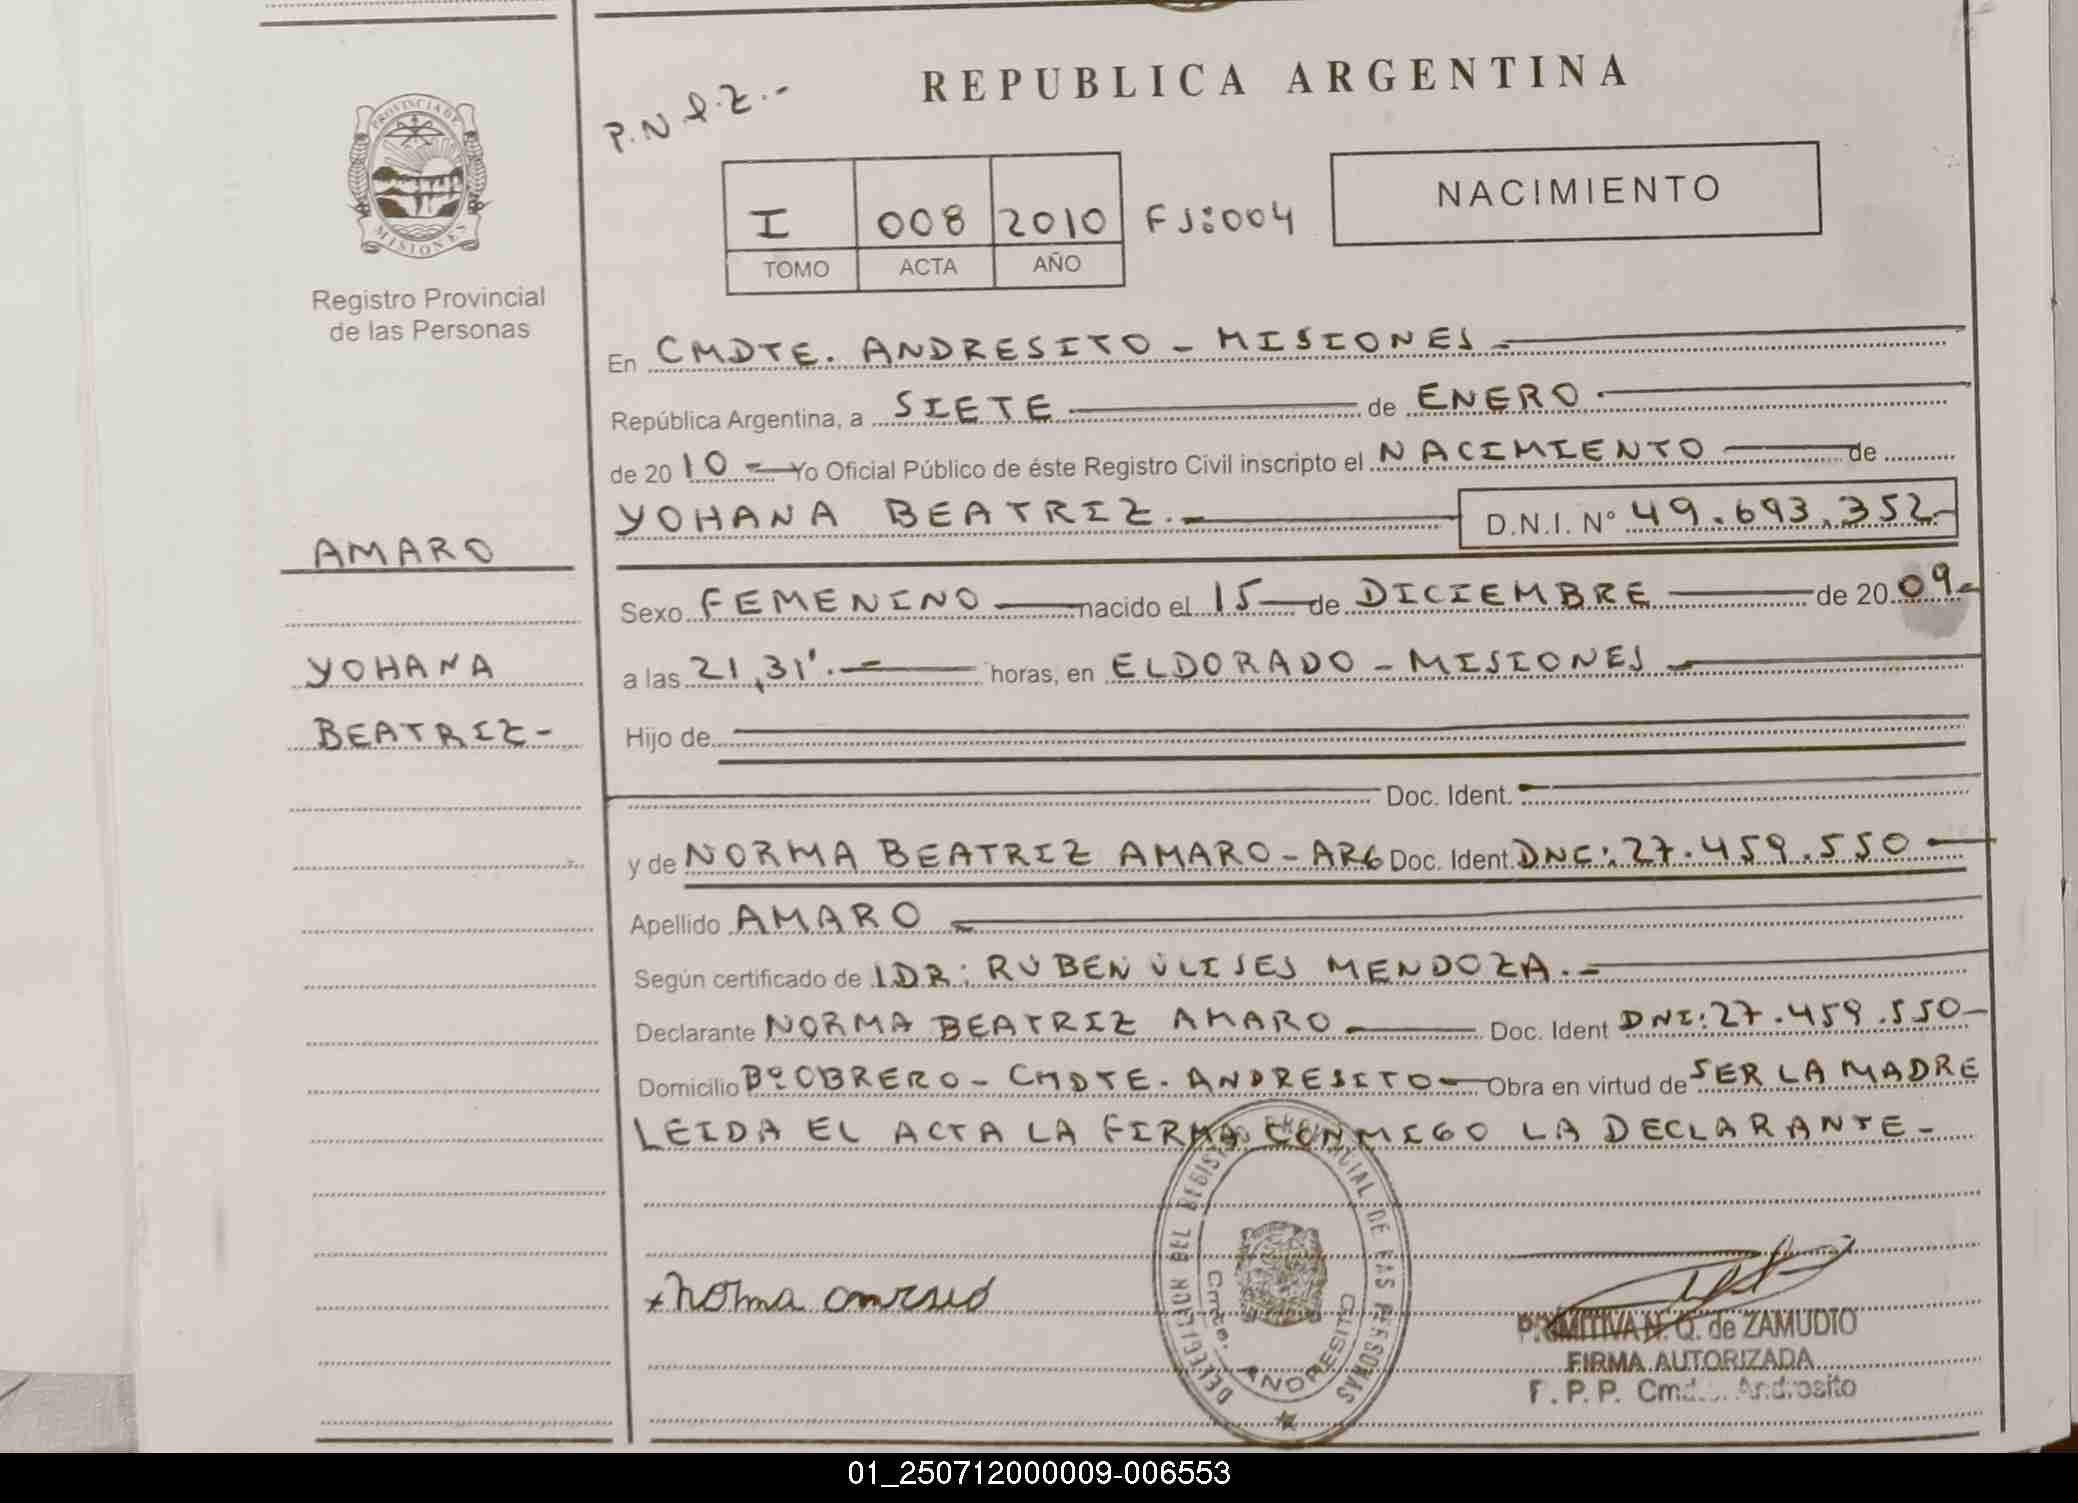 REPUBLICA ARGENTINA
P.N
PROVINCIA DE
MISIONES
Registro Provincial
de las Personas
I 008 2010 FJ:004
TOMO ACTA AÑO
NACIMIENTO
En CMDTE. ANDRESITO - MISIONES
República Argentina, a SIETE de ENERO
de 2010 - Yo Oficial Público de éste Registro Civil inscripto el NACIMIENTO de
YOHANA BEATRIZ.- D.N.I. Nº 49.693.352-
AMARO
YOHANA
BEATRIZ-
Sexo FEMENINO nacido el 15 de DICIEMBRE de 2009-
a las 21,31'. horas, en ELDORADO - MISIONES
Hijo de
Doc. Ident.
y de NORMA BEATRIZ AMARO - ARG Doc. Ident. DNI: 27.459.550
Apellido AMARO
Según certificado de DR: RUBEN ULISES MENDOZA.-
Declarante NORMA BEATRIZ AMARO Doc. Ident DNI: 27.459.550-
Domicilio Bº OBRERO - CMDTE. ANDRESITO - Obra en virtud de SER LA MADRE
LEIDA EL ACTA LA FIRMA CONMIGO LA DECLARANTE-
DELEGACION DEL REGISTRO PROVINCIAL DE LAS PERSONAS
Cmdte. ANDRESITO
Norma
PRIMITIVA N. Q. de ZAMUDIO
FIRMA AUTORIZADA
R.P.P. Cmdte. Andresito
01_250712000009-006553